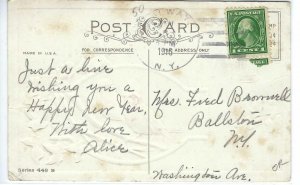 50
POST CARD
MADE IN U.S.A.
FOR CORRESPONDENCE
ADDRESS ONLY
1916
N.Y.
Just a line
Wishing you a
Happy New Year,
With love
Alice
Mrs. Fred Bromwell
Ballston
NY
Washington Ave.
Series 449 B